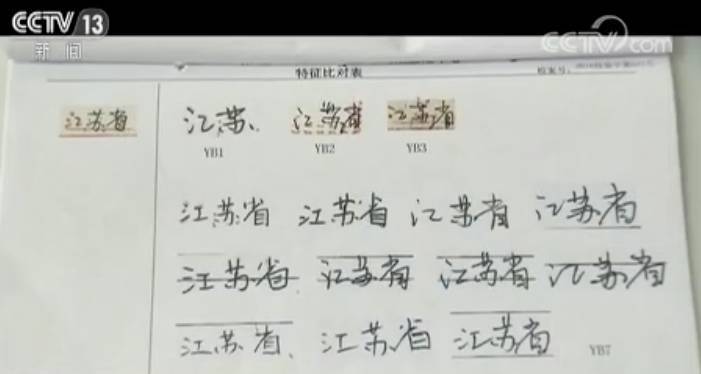 CCTV 13
新闻
CCTV.com
特征比对表
检案号:
江苏省 江苏、 江苏省 江苏省
YB1 YB2 YB3
江苏省 江苏省 江苏省 江苏省
江苏省 江苏省 江苏省 江苏省
江苏省、 江苏省 江苏省
YB7